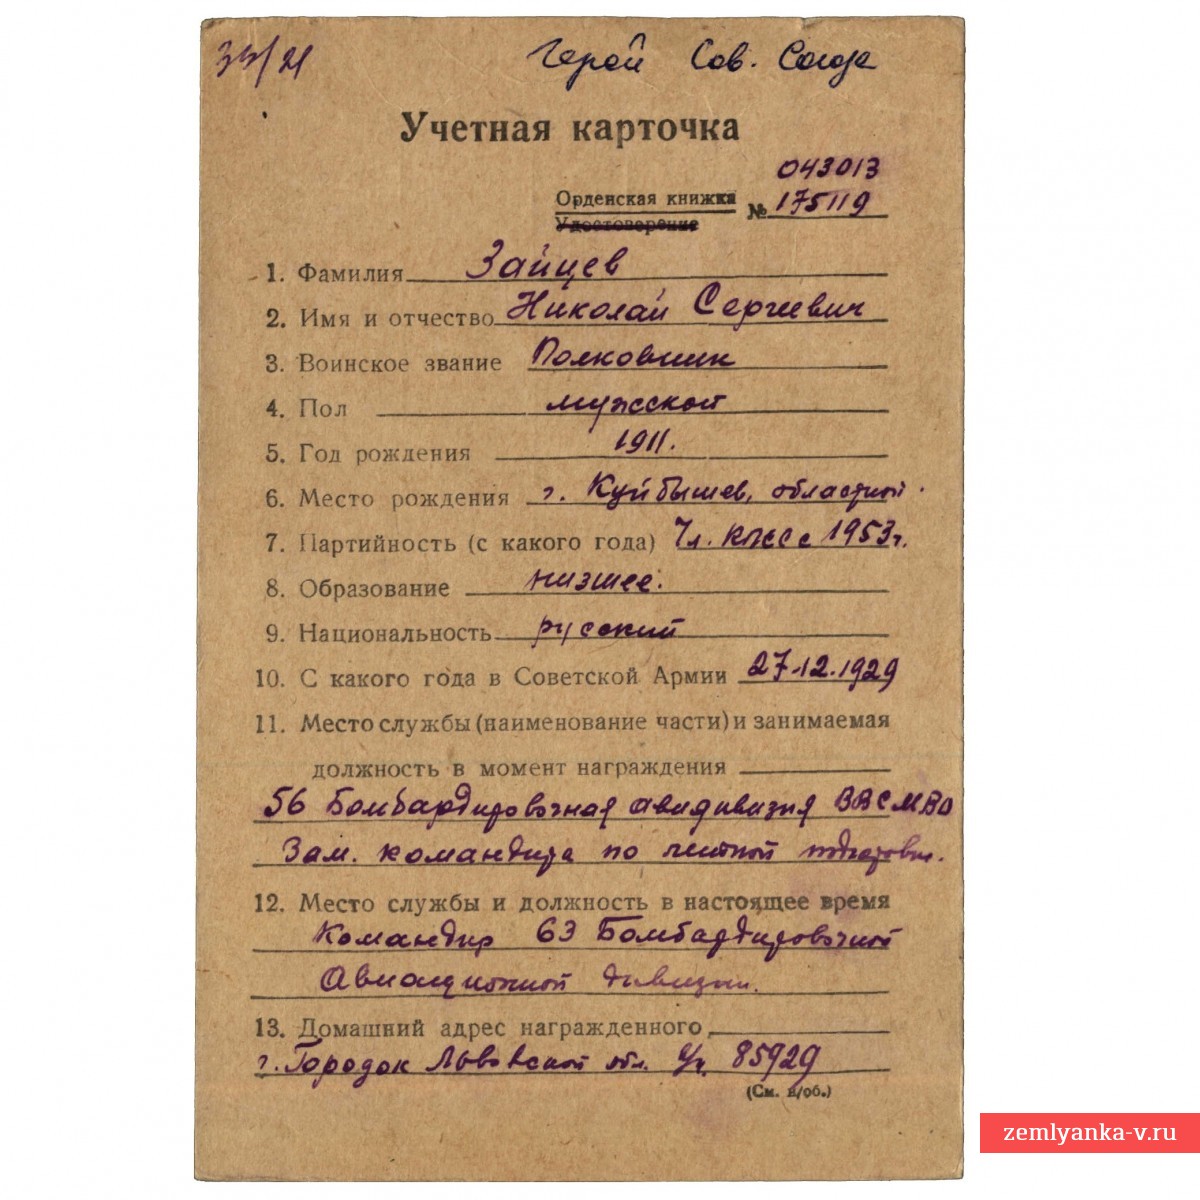 Герой Сов. Союза
Учетная карточка
043013
Орденская книжка
Удостоверение № 175119
1. Фамилия Зайцев
2. Имя и отчество Николай Сергеевич
3. Воинское звание Полковник
4. Пол мужской
5. Год рождения 1911.
6. Место рождения г. Куйбышев, областной.
7. Партийность (с какого года) Чл. КПСС с 1953г.
8. Образование низшее.
9. Национальность русский
10. С какого года в Советской Армии 27.12.1929
11. Место службы (наименование части) и занимаемая
должность в момент награждения
56 Бомбардировочная авиадивизия ВВС МВО
Зам. командира по летной подготовк.
12. Место службы и должность в настоящее время
Командир 63 Бомбардировочной
Авиационной дивизии.
13. Домашний адрес награжденного
г. Городок Львовской обл. 85929
(См. н/об.)
zemlyanka-v.ru